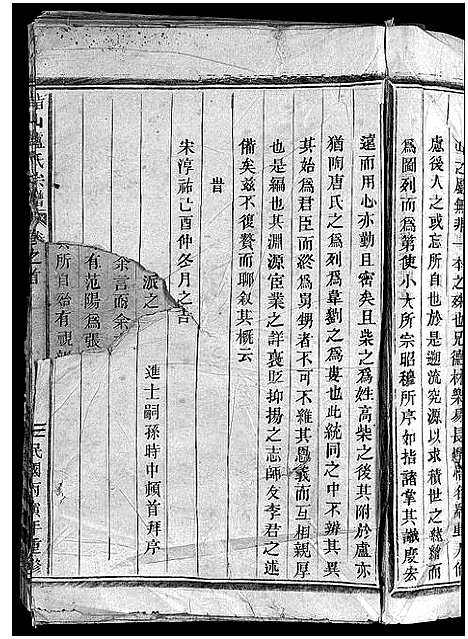 慮後人之或忘所自也於是遡流究源以求積世之蹟繪而
為圖列而為第使小大所宗昭穆所序如指諸掌其識慶宏
遠而用心亦勤且密矣且柴之為姓高柴之後其附於盧亦
猶陶唐氏之為列為韋劉之為婁也此統同之中不辨其異
其始為君臣而終為舅甥者不可不維其恩義而互相親厚
也是編也其淵源宦業之詳襃貶抑揚之志師文李君之述
備矣茲不復贅而聊敘其概云
旹
宋淳祐己酉仲冬月之吉
進士嗣孫時中頓首拜序
派之
余言而余
有范陽為張
所自始有視
山盧氏宗譜 卷之首
民國丙寅年重修